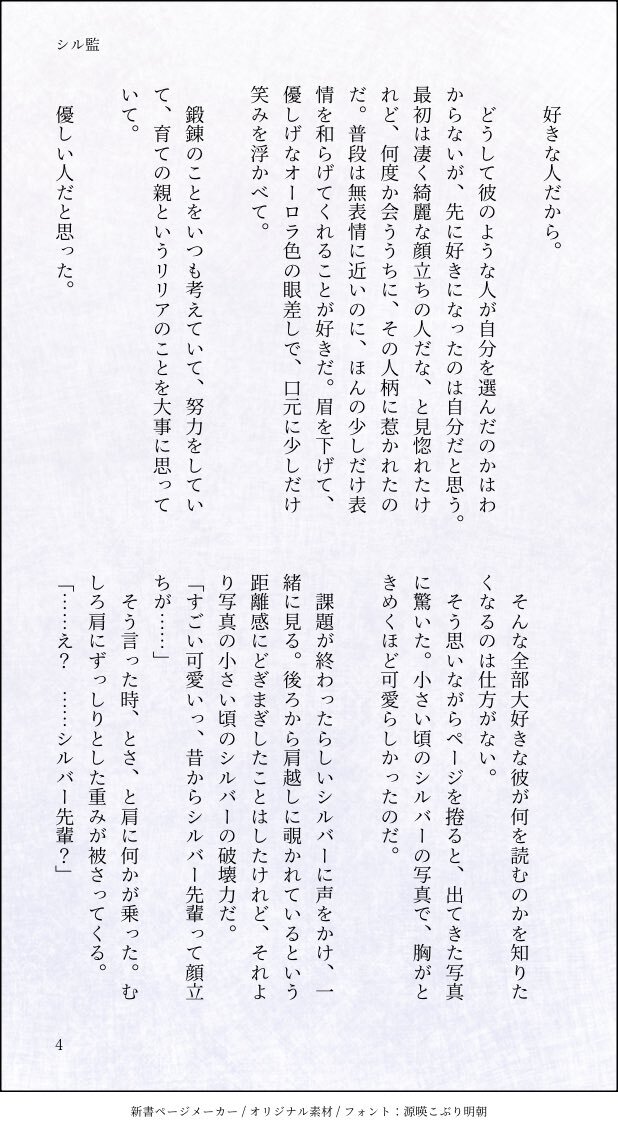 シル監
好きな人だから。
どうして彼のような人が自分を選んだのかはわ
からないが、先に好きになったのは自分だと思う。
最初は凄く綺麗な顔立ちの人だな、と見惚れたけ
れど、何度か会ううちに、その人柄に惹かれたの
だ。普段は無表情に近いのに、ほんの少しだけ表
情を和らげてくれることが好きだ。眉を下げて、
優しげなオーロラ色の眼差しで、口元に少しだけ
笑みを浮かべて。
鍛錬のことをいつも考えていて、努力をしてい
て、育ての親というリリアのことを大事に思って
いて。
優しい人だと思った。
そんな全部大好きな彼が何を読むのかを知りた
くなるのは仕方がない。
そう思いながらページを捲ると、出てきた写真
に驚いた。小さい頃のシルバーの写真で、胸がと
きめくほど可愛らしかったのだ。
課題が終わったらしいシルバーに声をかけ、一
緒に見る。後ろから肩越しに覗かれているという
距離感にどぎまぎしたことはしたけれど、それよ
り写真の小さい頃のシルバーの破壊力だ。
「すごい可愛いっ、昔からシルバー先輩って顔立
ちが……」
そう言った時、とさ、と肩に何かが乗った。む
しろ肩にずっしりとした重みが被さってくる。
「……え？　……シルバー先輩？」
4
新書ページメーカー / オリジナル素材 / フォント：源暎こぶり明朝